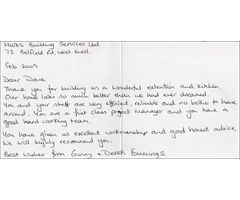 Hicks Building Services Ltd,
73 Selfield Rd, West Ewell.
Feb 2009
Dear Dave
Thank you for building us a wonderful extention and kitchen
Our home looks so much better than we had ever dreamed.
You and your staff are very efficient, reliable and no bother to have
around. You are a first class project manager and you have a
good hard working team.
You have given us excellent workmanship and good honest advice,
We will highly recommend you.
Best Wishes from Ginny & Derek Emmings.